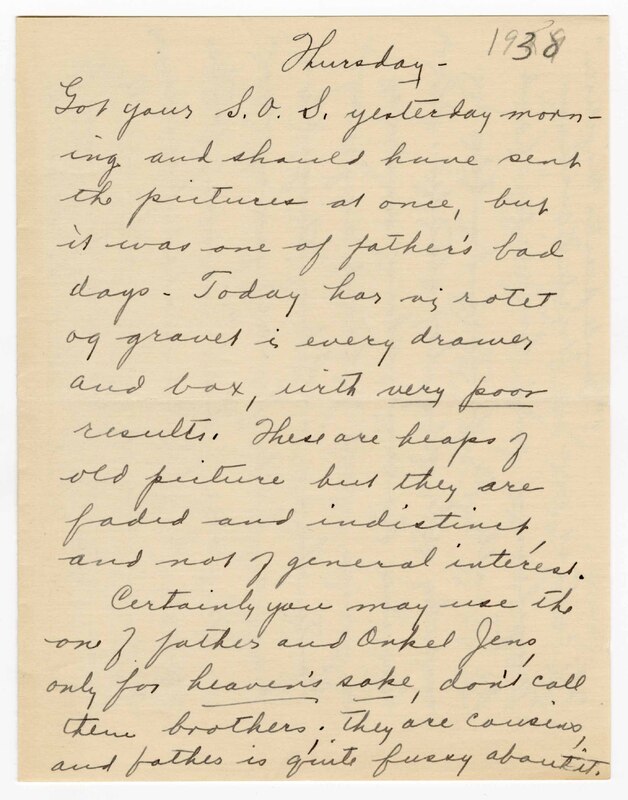 1938
Thursday -
Got your S.O.S. yesterday morn-
ing and should have sent
the pictures at once, but
it was one of father's bad
days - Today har vi rotet
og gravet i every drawer
and box, with very poor
results. These are heaps of
old picture but they are
faded and indistinct,
and not of general interest.
Certainly you may use the
one of father and Onkel Jens,
only for heaven's sake, don't call
them brothers. They are cousins,
and father is quite fussy about it.